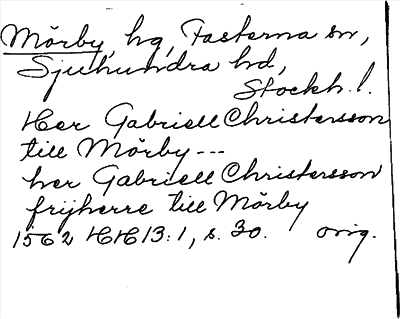 Mörby, hg, Fasterna sn,
Sjuhundra hd,
Stockh. l.
Her Gabriell Christersson
till Mörby ---
her Gabriell Christersson
frijherre till Mörby
1562 HH 13:1, s. 30. orig.